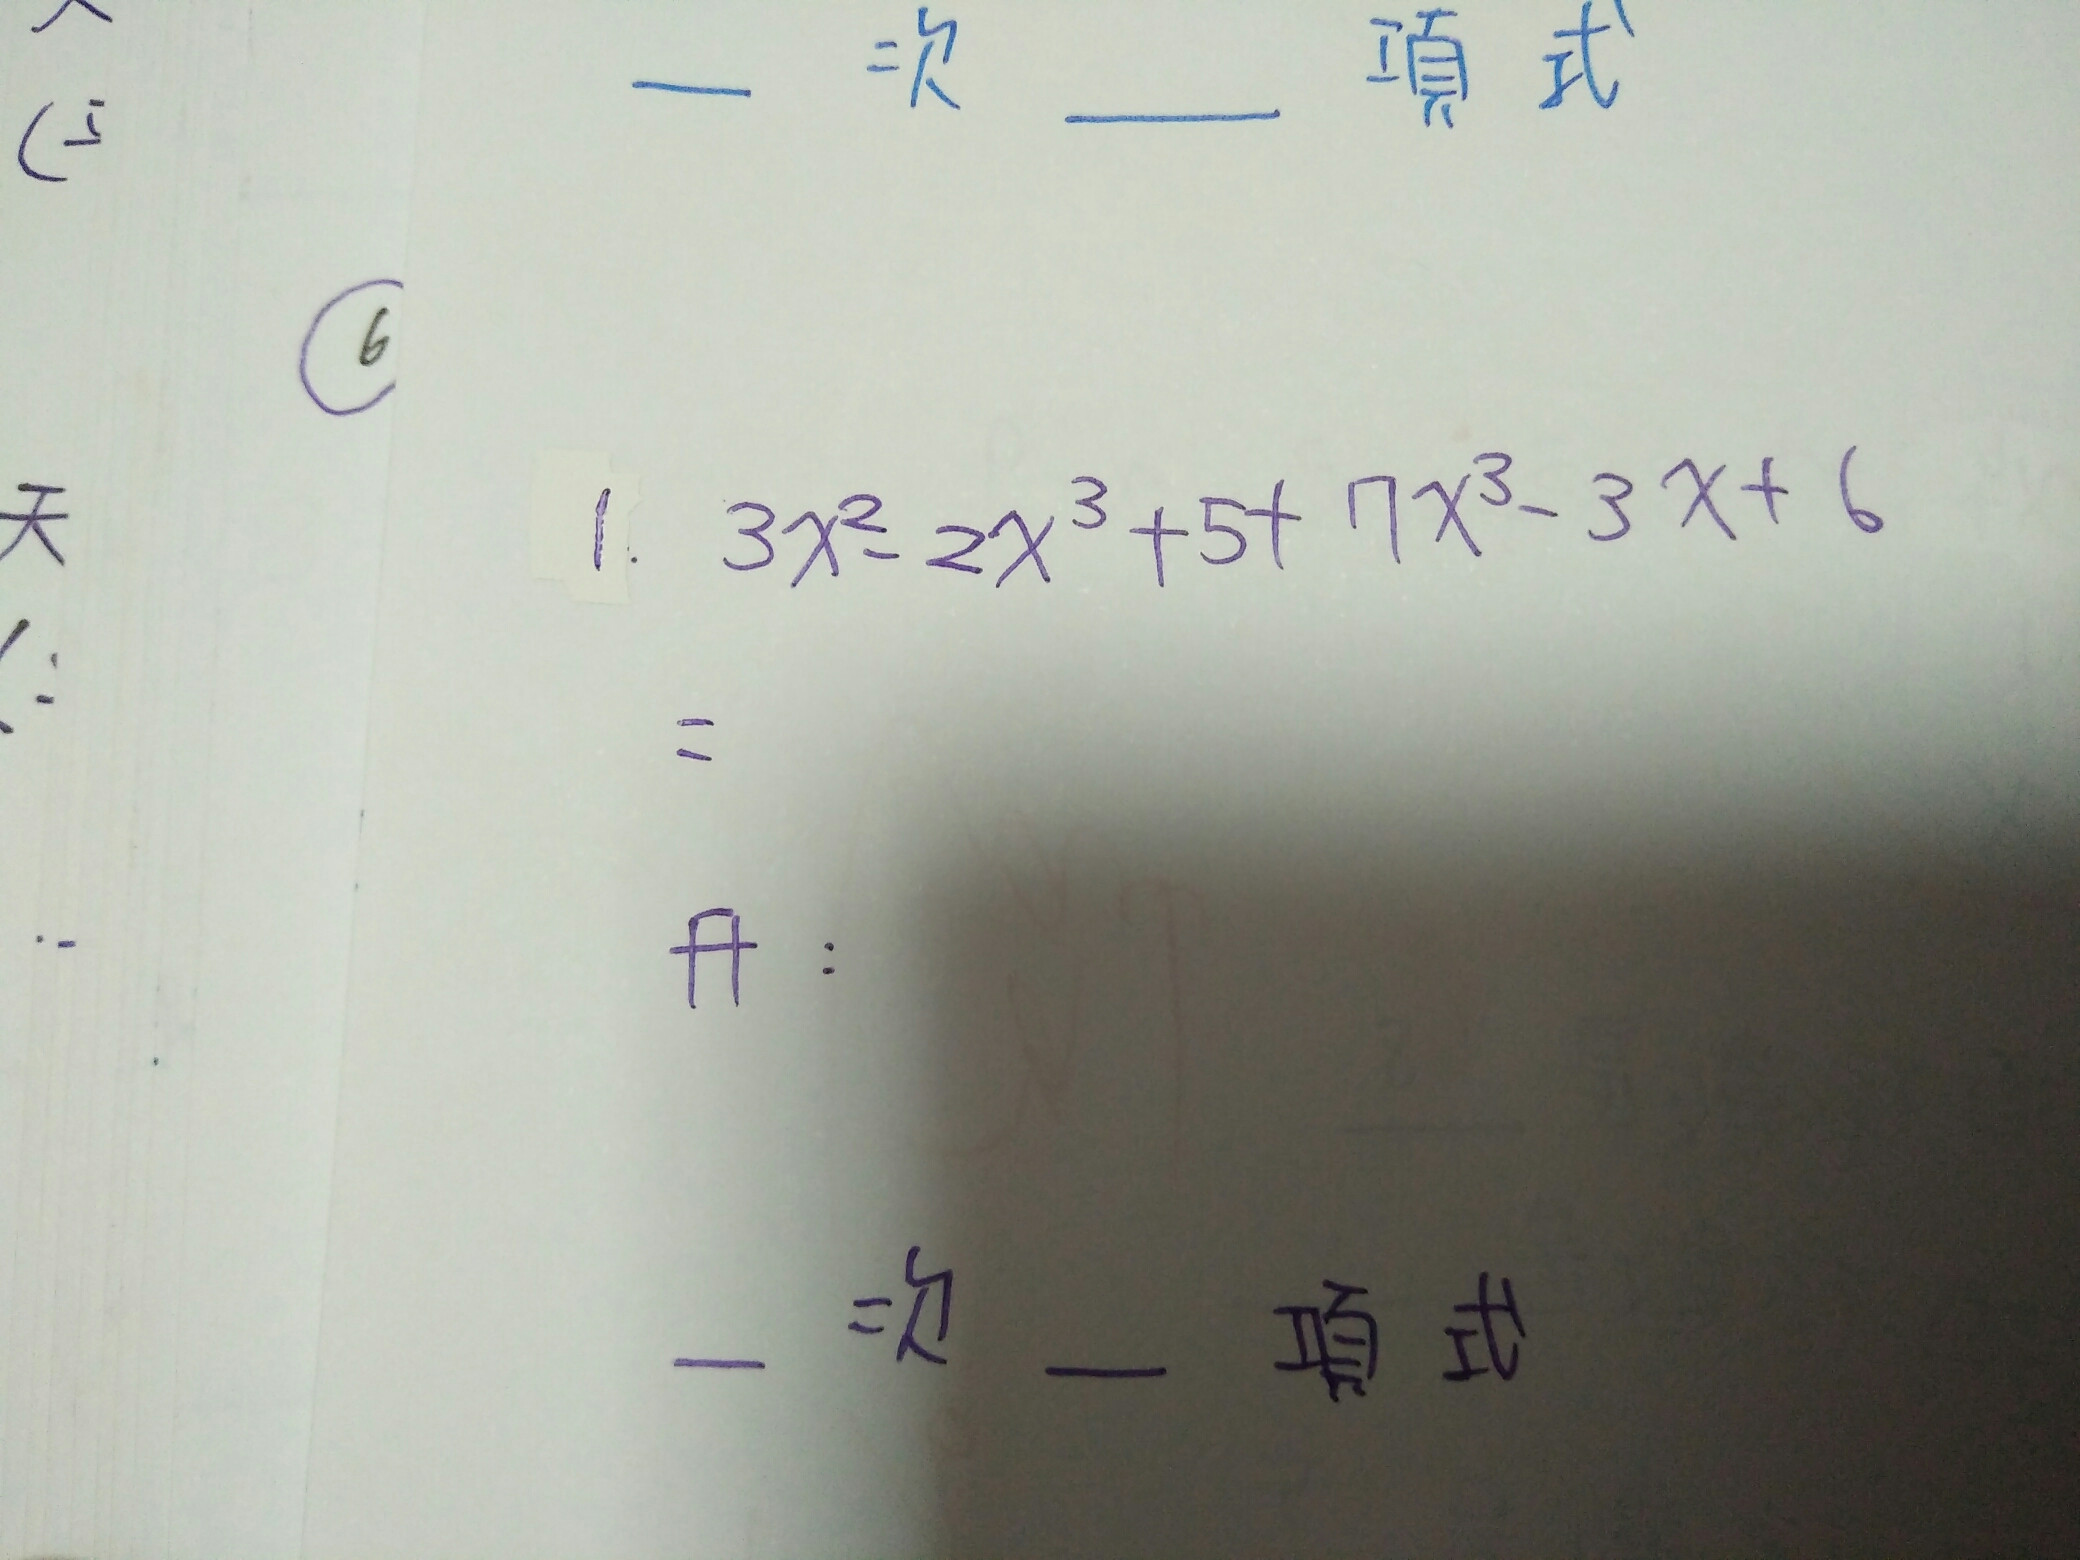 次 項式
6
1. 3x²-2x³+5+7x³-3x+6
=
升:
次 項式
天